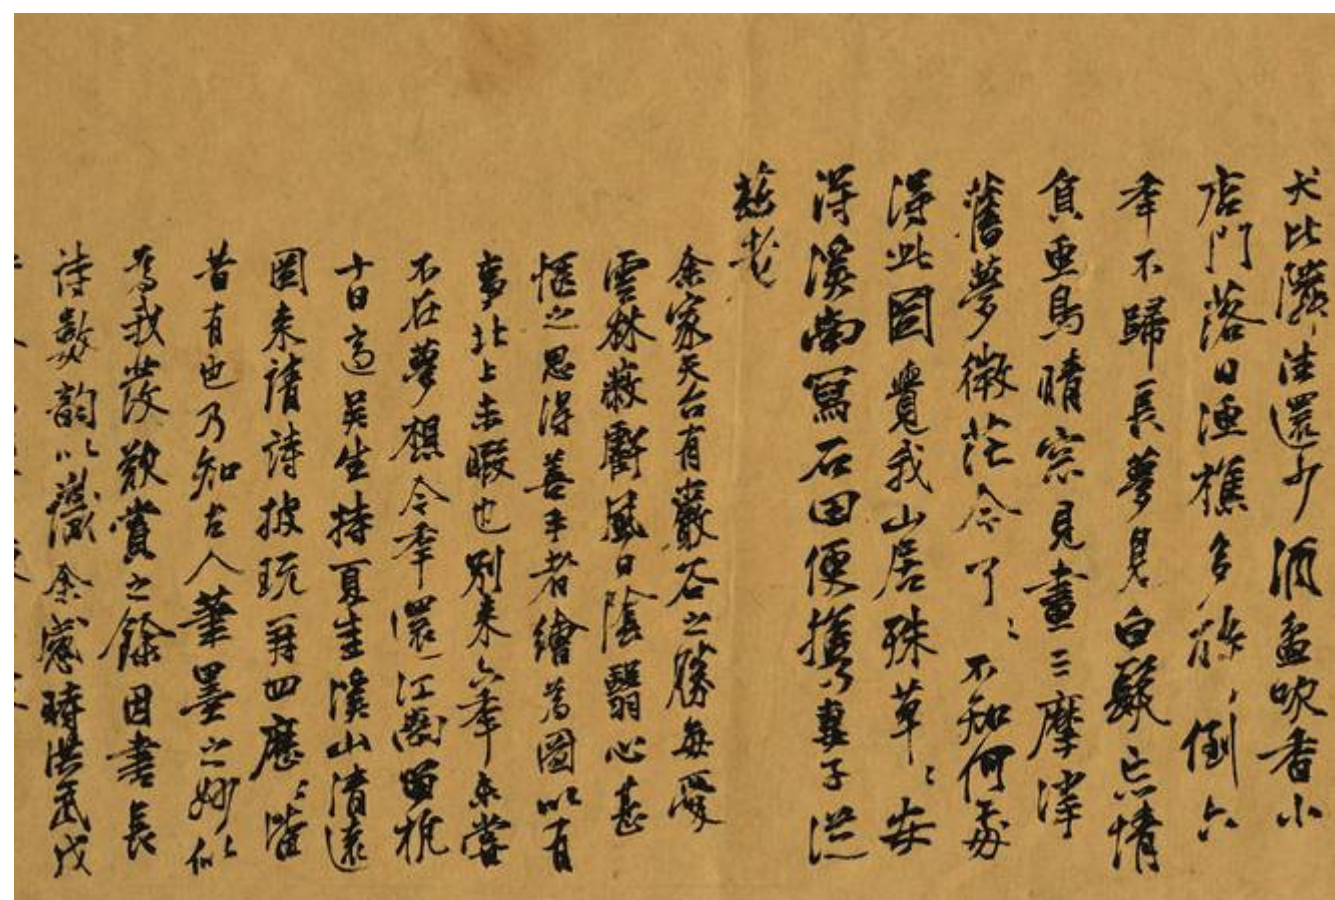 犬比隣住還少酒盃吹香小
店門落日漁樵多醉倒六
年不歸長夢見白髮忘情
魚鳥晴窓見畫三摩挲
舊夢微茫今
不知何處
得此圖覺我山居殊草〻安
得溪南寫石田便攜妻子從
老
余家天台有巖谷之勝每愛
雲林蔽虧風日陰翳心甚
愜之思得善手者繪為圖以有
事北上未暇也別來六年未嘗
不在夢想今年還江南留杭
十日適吳生持夏圭溪山清遠
圖來請詩披玩再四歷〻皆
昔有也乃知古人筆墨之妙似
為我發歎賞之餘因書長
詩數韻以識余感時洪武戊